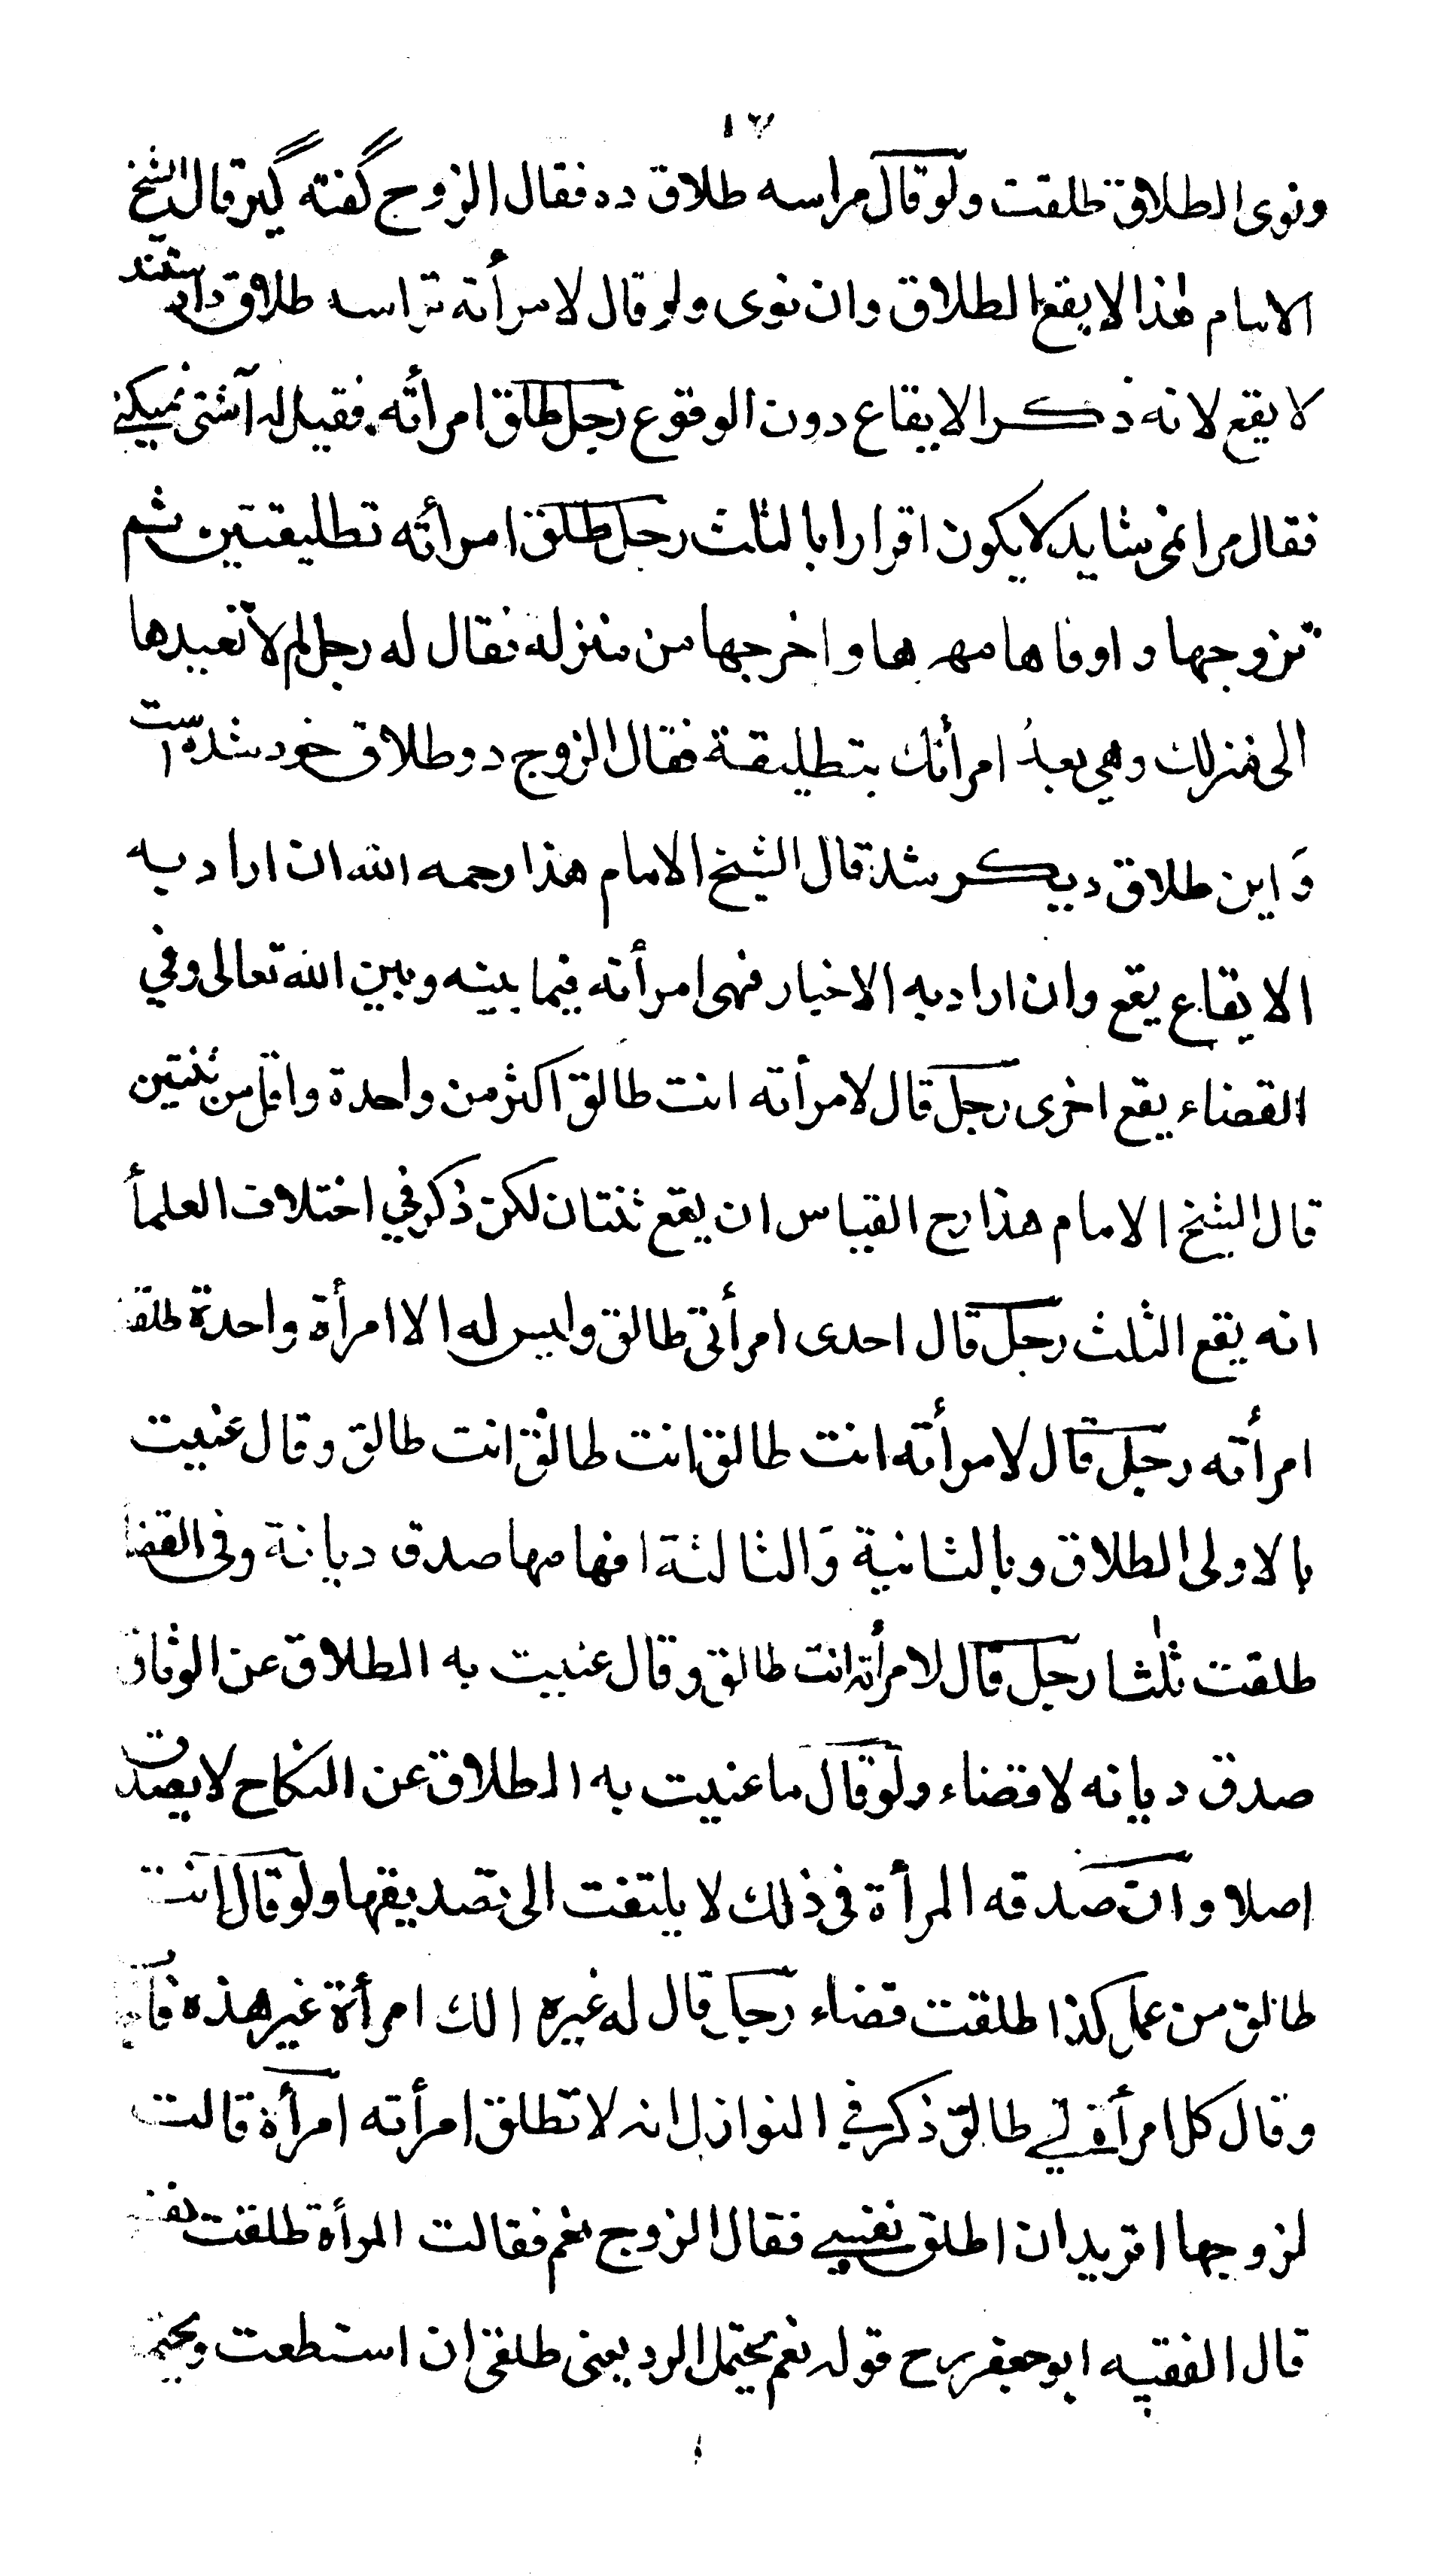 ١٧
ونوى الطلاق طلقت ولو قال مرا سه طلاق ده فقال الزوج گفته گير قال الشيخ
الامام هذا لا يقع الطلاق وان نوى ولو قال لامرأته ترا سه طلاق دادستند
لا يقع لانه ذكر الايقاع دون الوقوع رجل طلق امرأته فقيل له آشتى نميكنے
فقال مرا نمى شايد لا يكون اقرارا بالثلث رجل طلق امرأته تطليقتين ثم
تزوجها واوفاها مهرها واخرجها من منزله فقال له رجل لم لا تعيدها
الى منزلك وهي بعد امرأتك بتطليقة فقال الزوج دو طلاق خود شده است
وَاين طلاق ديكر شد قال الشيخ الامام هذا رحمه الله ان اراد به
الايقاع يقع وان اراد به الاخبار فهى امرأته فيما بينه وبين الله تعالى وفي
القضاء يقع اخرى رجل قال لامرأته انت طالق اكثر من واحدة واقل من ثنتين
قال الشيخ الامام هذا رح القياس ان يقع ثنتان لكن ذكر في اختلاف العلمأ
انه يقع الثلث رجل قال احدى امرأتى طالق وليس له الا امرأة واحدة طلقت
امرأته رجل قال لامرأته انت طالق انت طالق انت طالق وقال عنيت
بالاولى الطلاق وبالثانية وَالثالثة افهامها صدق ديانة وفى القضا
طلقت ثلٰثا رجل قال لامرأته انت طالق وقال عنيت به الطلاق عن الوثاق
صدق ديانه لا قضاء ولو قال ما عنيت به الطلاق عن النكاح لا يصدق
اصلا وان صدقه المرأة فى ذلك لا يلتفت الى تصديقها ولو قال انت
طالق من عمل كذا طلقت قضاء رجل قال له غيره الك امرأة غير هذه
وقال كل امرأة لے طالق ذكر في النوازل انه لا تطلق امرأته امرأة قالت
لزوجها اتريد ان اطلق نفسے فقال الزوج نعم فقالت المرأة طلقت
قال الفقيه ابو جعفر رح قوله نعم يحتمل الرد يعنى طلقى ان استطعت